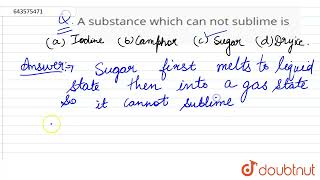 643575471
Q. A substance which can not sublime is
(a) Iodine (b) Camphor (c) Sugar (d) Dryice.
Answer:- Sugar first melts to liquid
state then into a gas state
So it cannot sublime
doubtnut